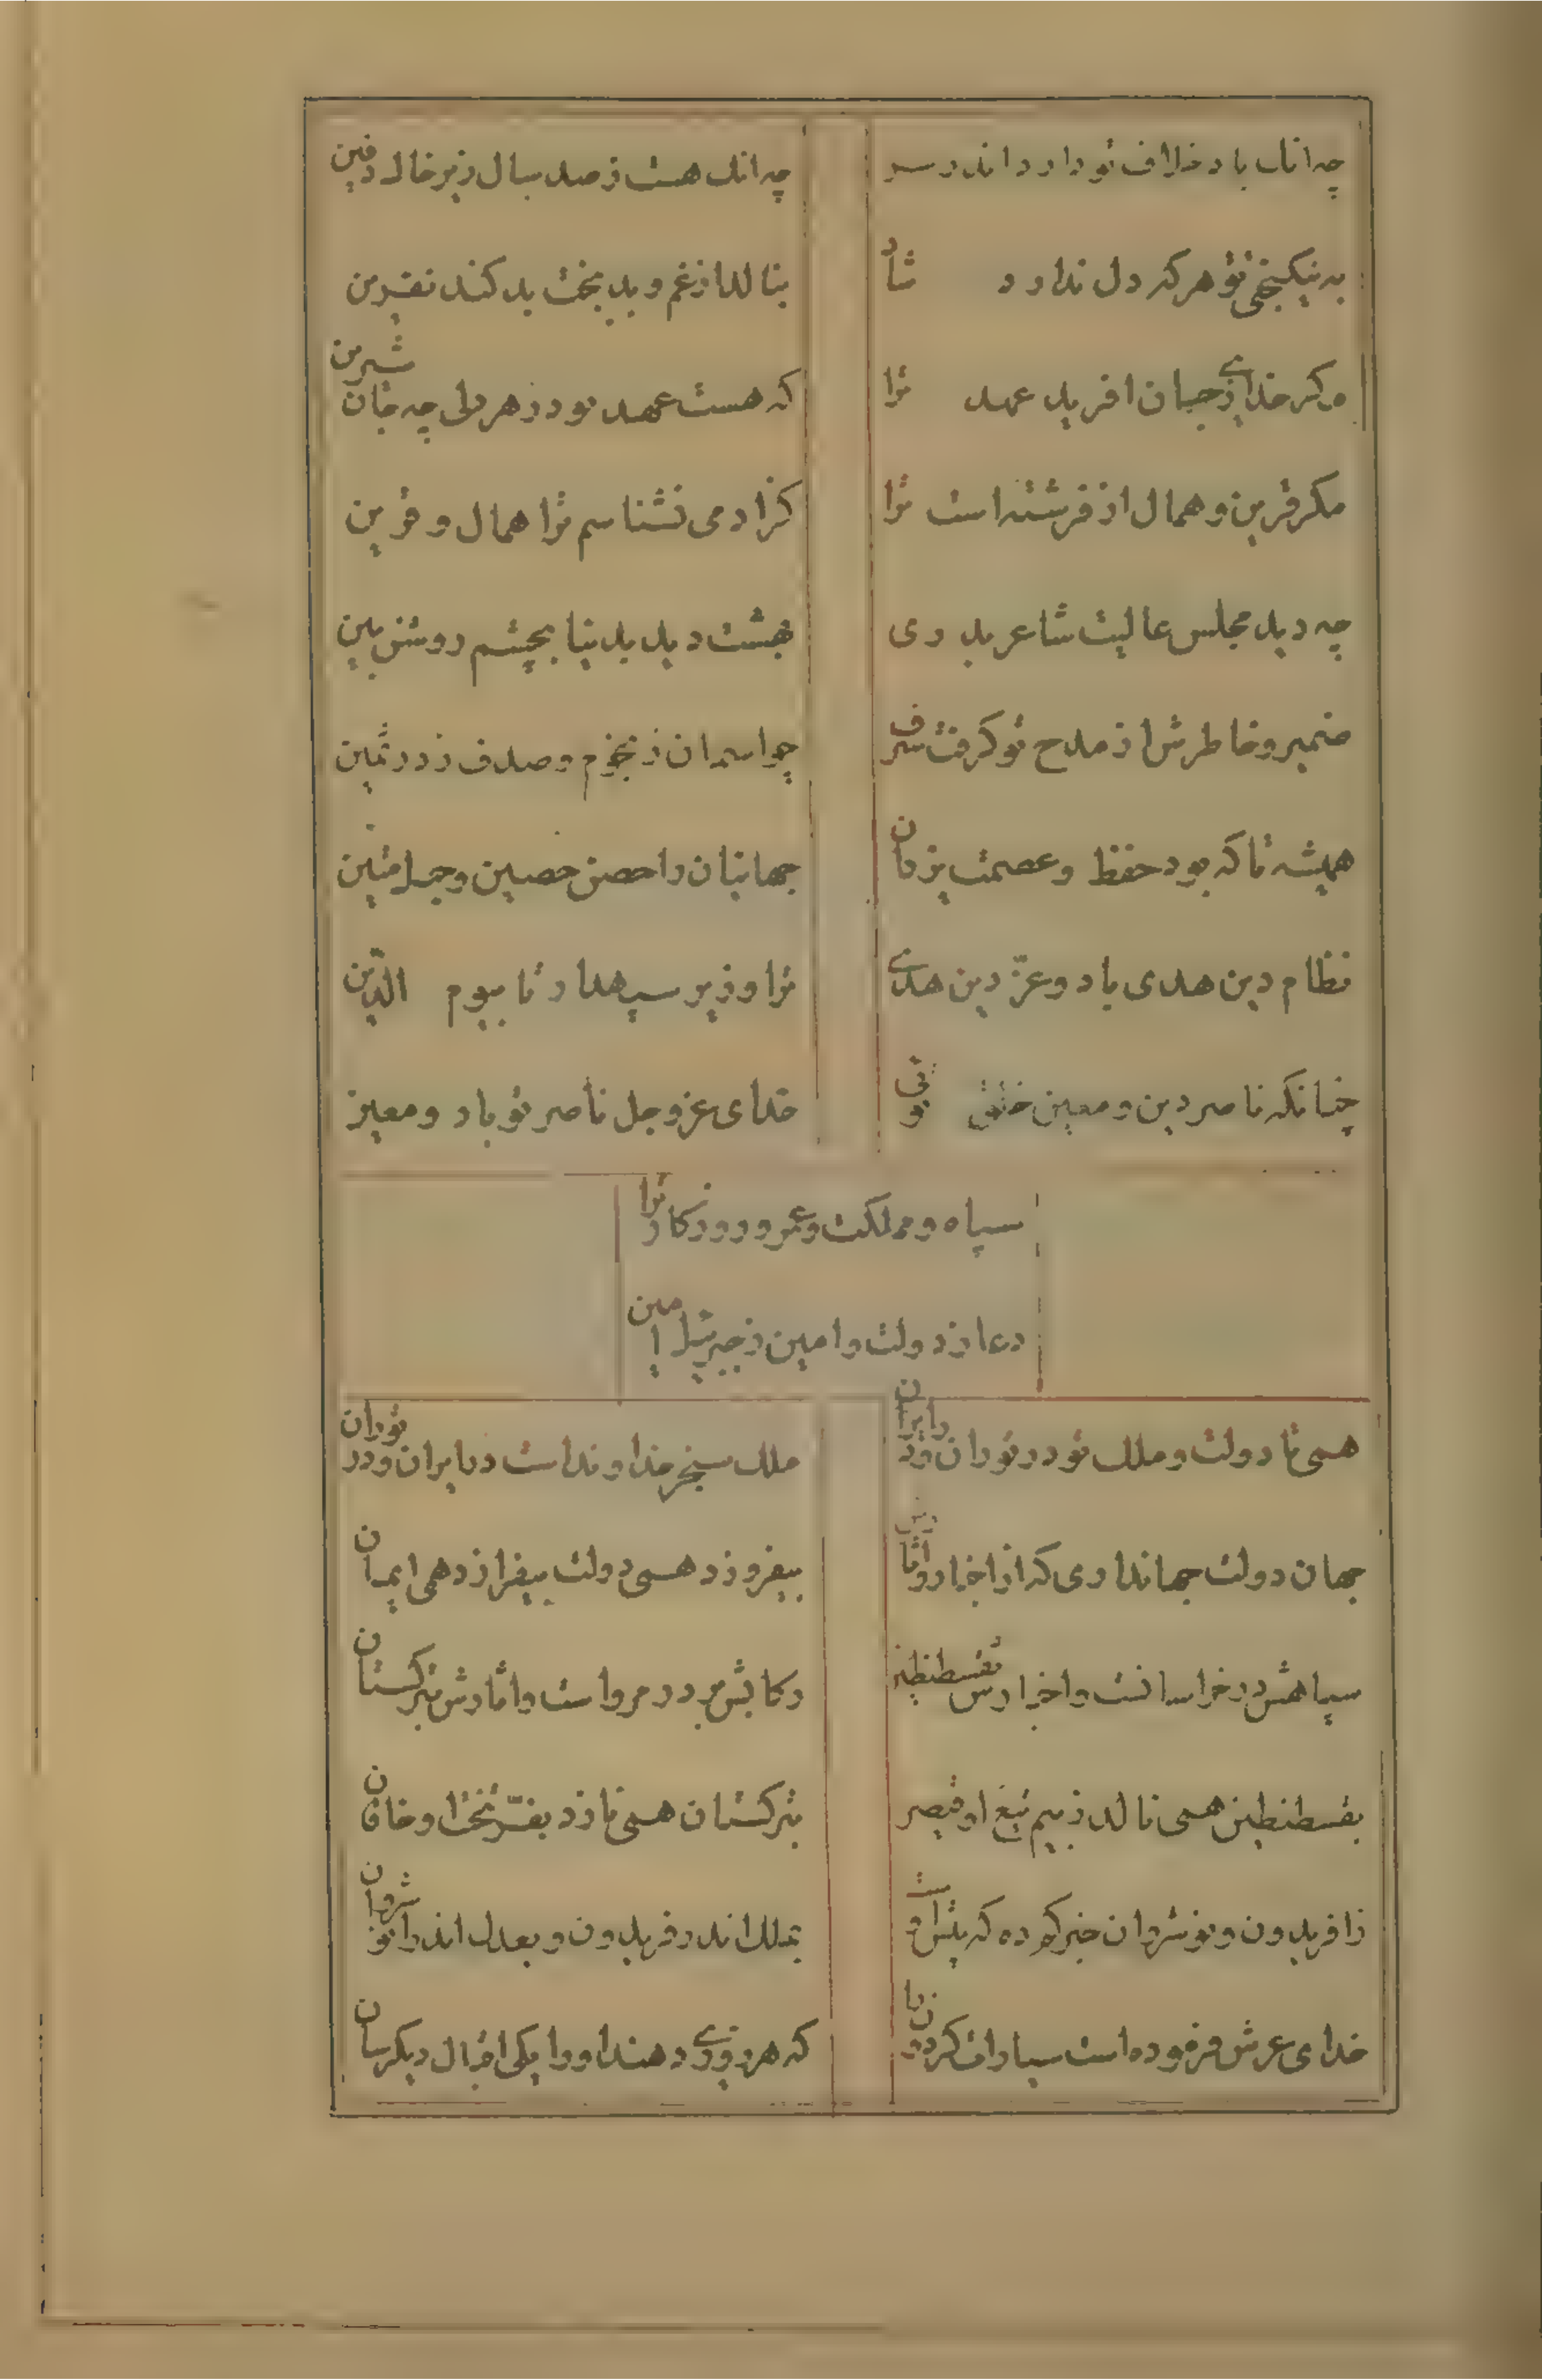 چه انک باد خلاف تو دارد اندر سر
چه انک هست ز صد سال زیر خاک دفین
به نیکبختی تو هر که دل ندارد شاد
بنالد از غم و بد بخت بد کند نفرین
مکر خدای ز جان افرید عهد ترا
که هست عهد تو در هر دلی چه جان شیرین
مکر قرین و همال از فرشته است ترا
کز ادمی نشناسم ترا همال و قرین
چه دید مجلس عالیت شاعر بدوی
بهشت دید بدنیا بچشم روشن بین
ضمیر و خاطرش از مدح تو کرفت شرف
چو اسمان ز نجوم و صدف ز در ثمین
همیشه تا که بود حفظ و عصمت یزدان
جهانیان را حصن حصین و حبل متین
نظام دین هدی باد و عزّ دین هدی
ترا وزیر سپهدار تا بیوم الدّین
چنانکه ناصر دین و معین خلق توئی
خدای عز و جل ناصر تو باد و معین
سپاه و مملکت و عمر و روزکار ترا
دعا ز دولت و امین ز جبرئیل امین
همی تا دولت و ملک تو در توران و در ایران
ملک سنجر خداوند است در ایران و در توران
جهان دولت جهانداری که از اخبار و اثارش
بیفروزد همی دولت بیفرازد همی ایمان
سپاهش در خراسانست و اخبارش بقسطنطین
رکابش در مرو است و اثارش بترکستان
بقسطنطین همی نالد ز بیم تیغ او قیصر
بترکستان همی نازد بفرّ تخت او خاقان
ز افریدون و نوشروان خبر کم ده که پیش است او
بملک اندر فریدون و بعدل اندر انوشروان
خدای عرش فرموده است سیارات کردون را
که هر روزی دهند او را یکی اقبال دیکرسان